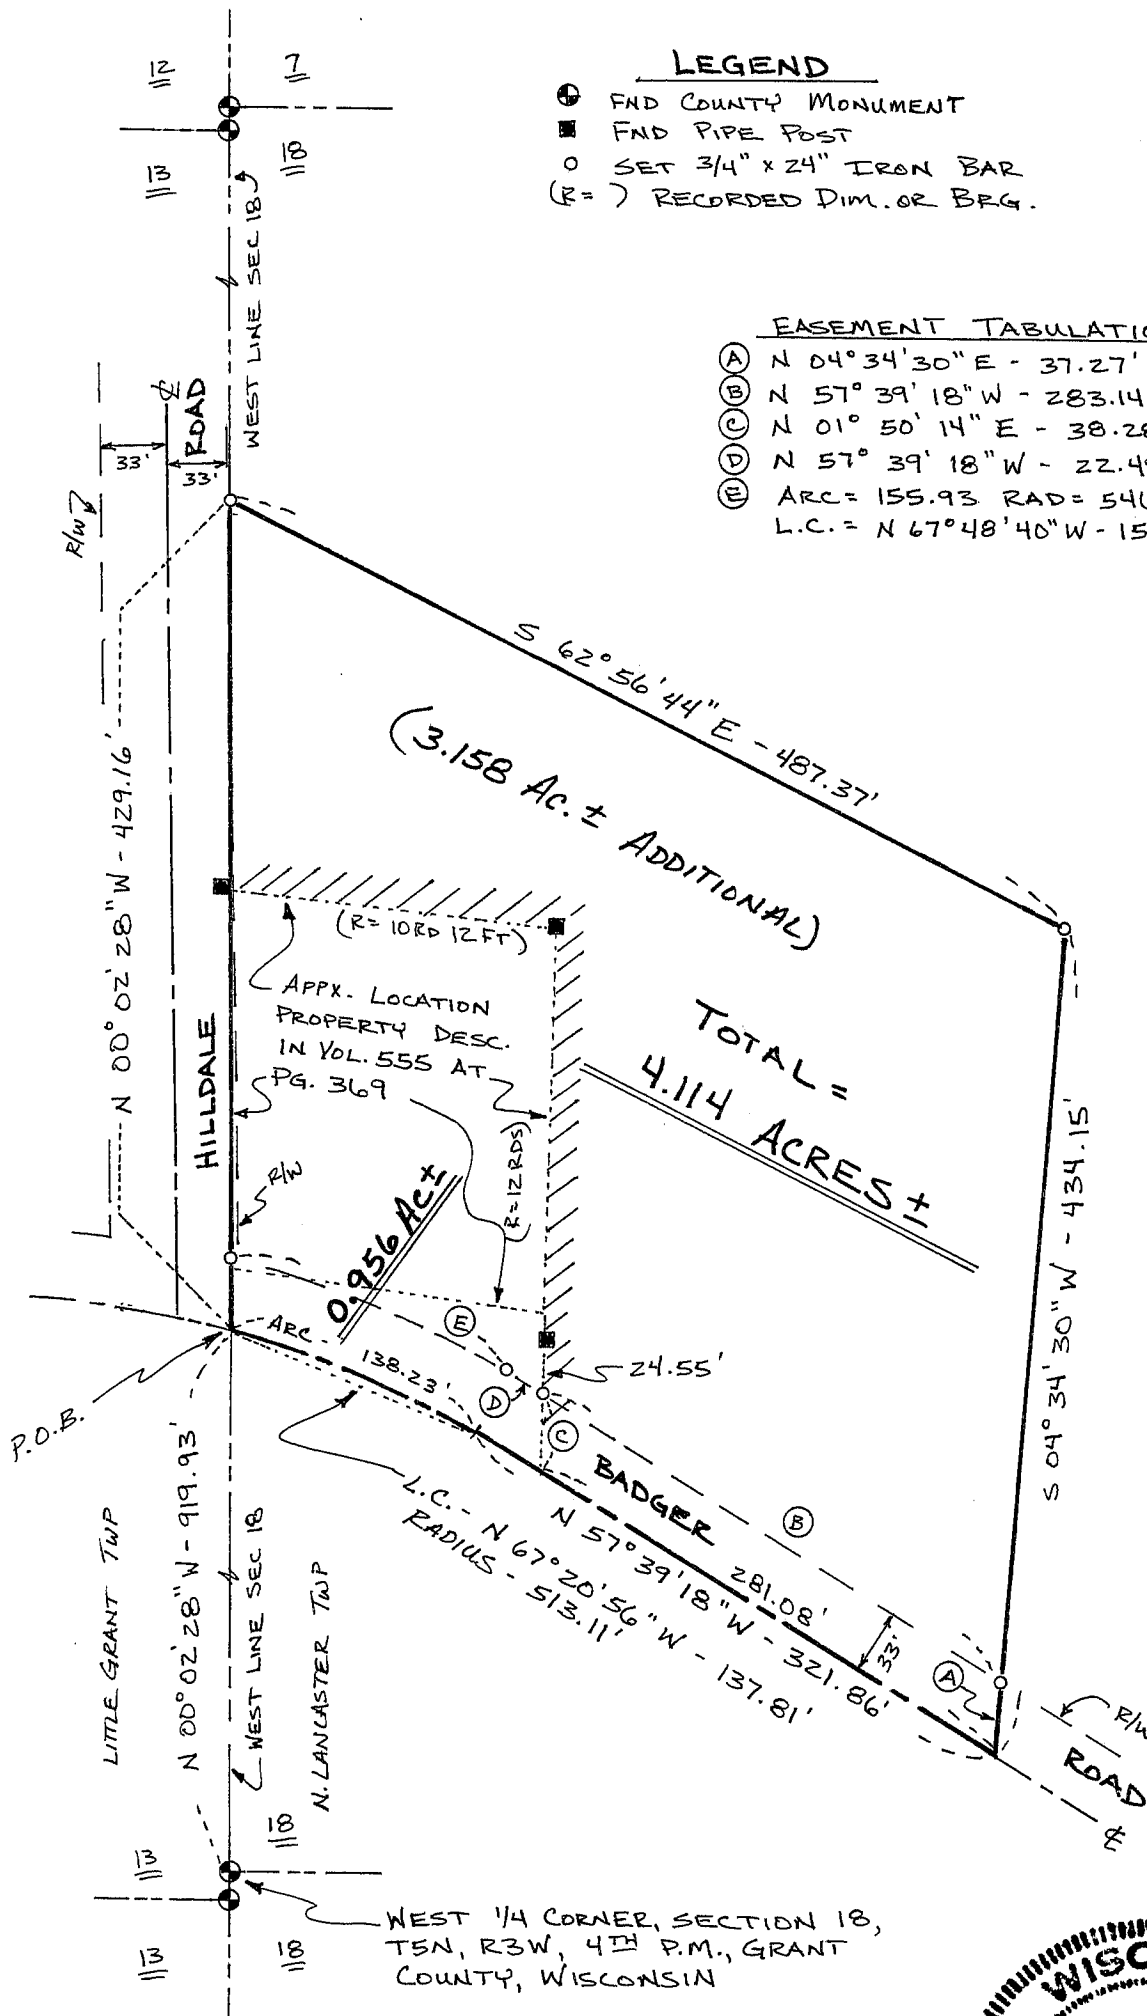 12
7
13
18
LEGEND
FND COUNTY MONUMENT
FND PIPE POST
SET 3/4" x 24" IRON BAR
(R= ) RECORDED DIM. OR BRG.
WEST LINE SEC 18
EASEMENT TABULATIO
A N 04° 34' 30" E - 37.27'
B N 57° 39' 18" W - 283.14
C N 01° 50' 14" E - 38.28
D N 57° 39' 18" W - 22.4
E ARC = 155.93 RAD = 54
L.C. = N 67° 48' 40" W - 15
ROAD
33'
33'
R/W
S 62° 56' 44" E - 487.37'
(3.158 AC. ± ADDITIONAL)
N 00° 02' 28" W - 429.16'
(R= 10RD 12 FT)
APPX. LOCATION
PROPERTY DESC.
IN VOL. 555 AT
PG. 369
HILLDALE
TOTAL =
4.114 ACRES ±
(R=12 RDS)
R/W
0.956 AC±
S 04° 34' 30" W - 434.15'
ARC
138.23'
E
D
C
24.55'
P.O.B.
BADGER
B
N 57° 39' 18" W - 321.86'
281.08'
33'
L.C. - N 67° 20' 56" W - 137.81'
RADIUS - 513.11'
A
R/W
ROAD
LITTLE GRANT TWP
N 00° 02' 28" W - 919.93'
WEST LINE SEC 18
N. LANCASTER TWP
13
18
13
18
WEST 1/4 CORNER, SECTION 18,
T5N, R3W, 4TH P.M., GRANT
COUNTY, WISCONSIN
WISC